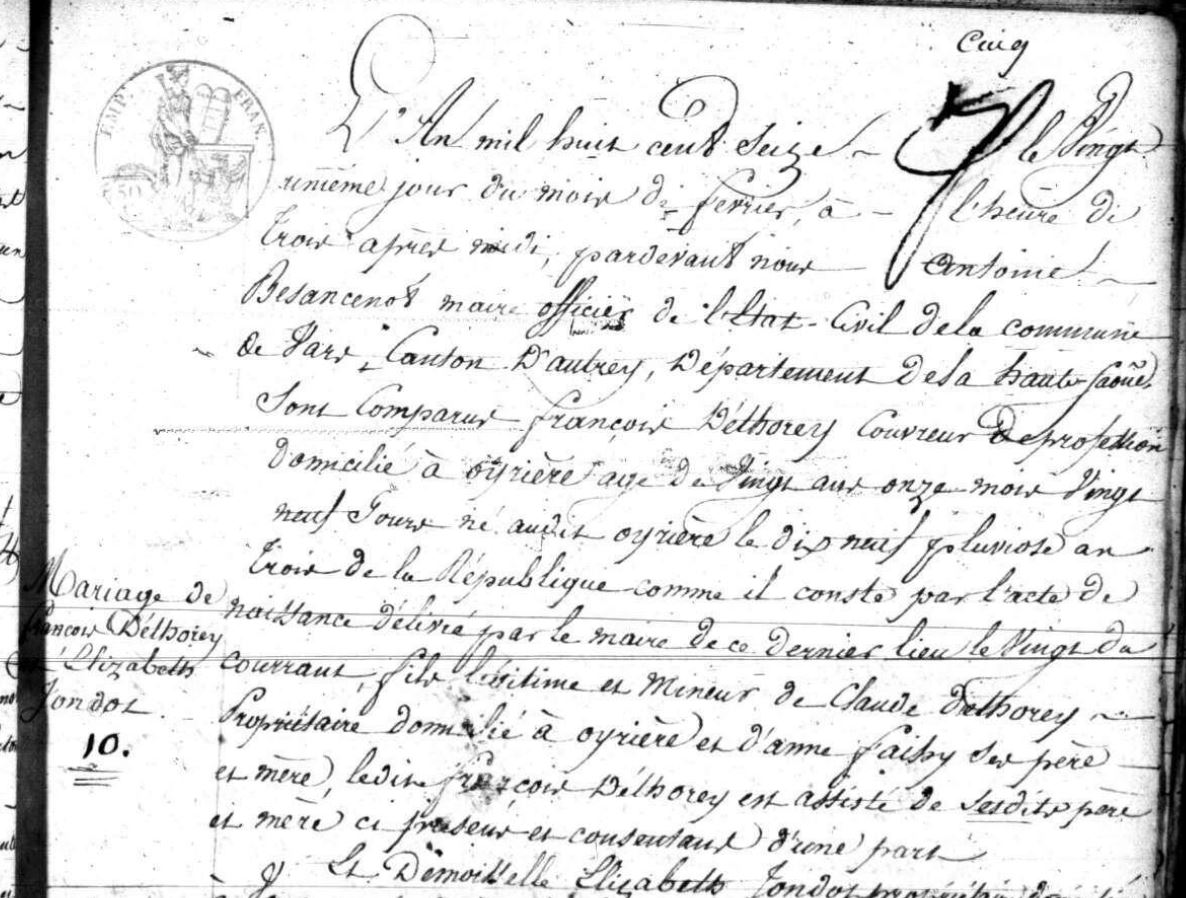 Cinq
EMP. FRAN.
50
5
L'An mil huit cent Seize le Vingt
unième jour du mois de fevrier, à l'heure de
trois après midi, pardevant nous Antoine
Besancenot maire officier de l'Etat-Civil dela commune
de Vars, Canton D'autrey, Département Dela haute saône.
Sont Comparus françois Déthorey Couvreur De profession
domicilié à oyrière age de Vingt ans onze mois Vingt
neuf Jours né audit oyrière le dix neuf pluviose an
trois de la République comme il conste par l'acte de
naissance délivré par le maire de ce dernier lieu le Vingt du
courrant, fils légitime et Mineur de Claude Dethorey
Propriétaire domicilié à oyrière et d'anne faihy ses père
et mère, ledit françois Déthorey est assisté de sesdits père
et mère ci présens et consentans d'une part
Et Demoiselle Elizabeth Jondot
Mariage de
françois Déthorey
et Elizabeth
Jondot
10.